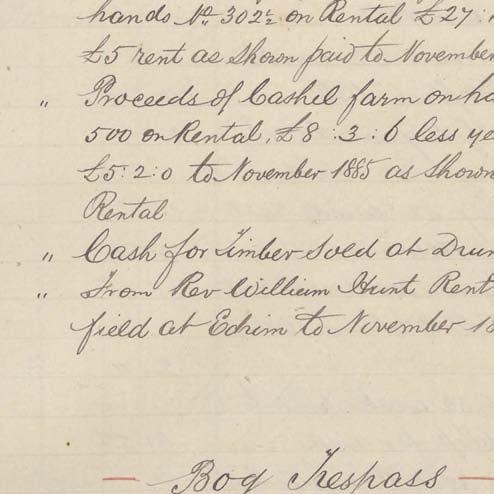 hands No. 302 1/2 on Rental £27 :
£5 rent as shown paid to November
" Proceeds of Cashel farm on ha
500 on Rental, £8 : 3 : 6 less ye
£5 : 2 : 0 to November 1885 as shown
Rental
" Cash for Timber sold at Drum
" From Rev William Hunt Rent
field at Edrim to November 18
Bog Trespass